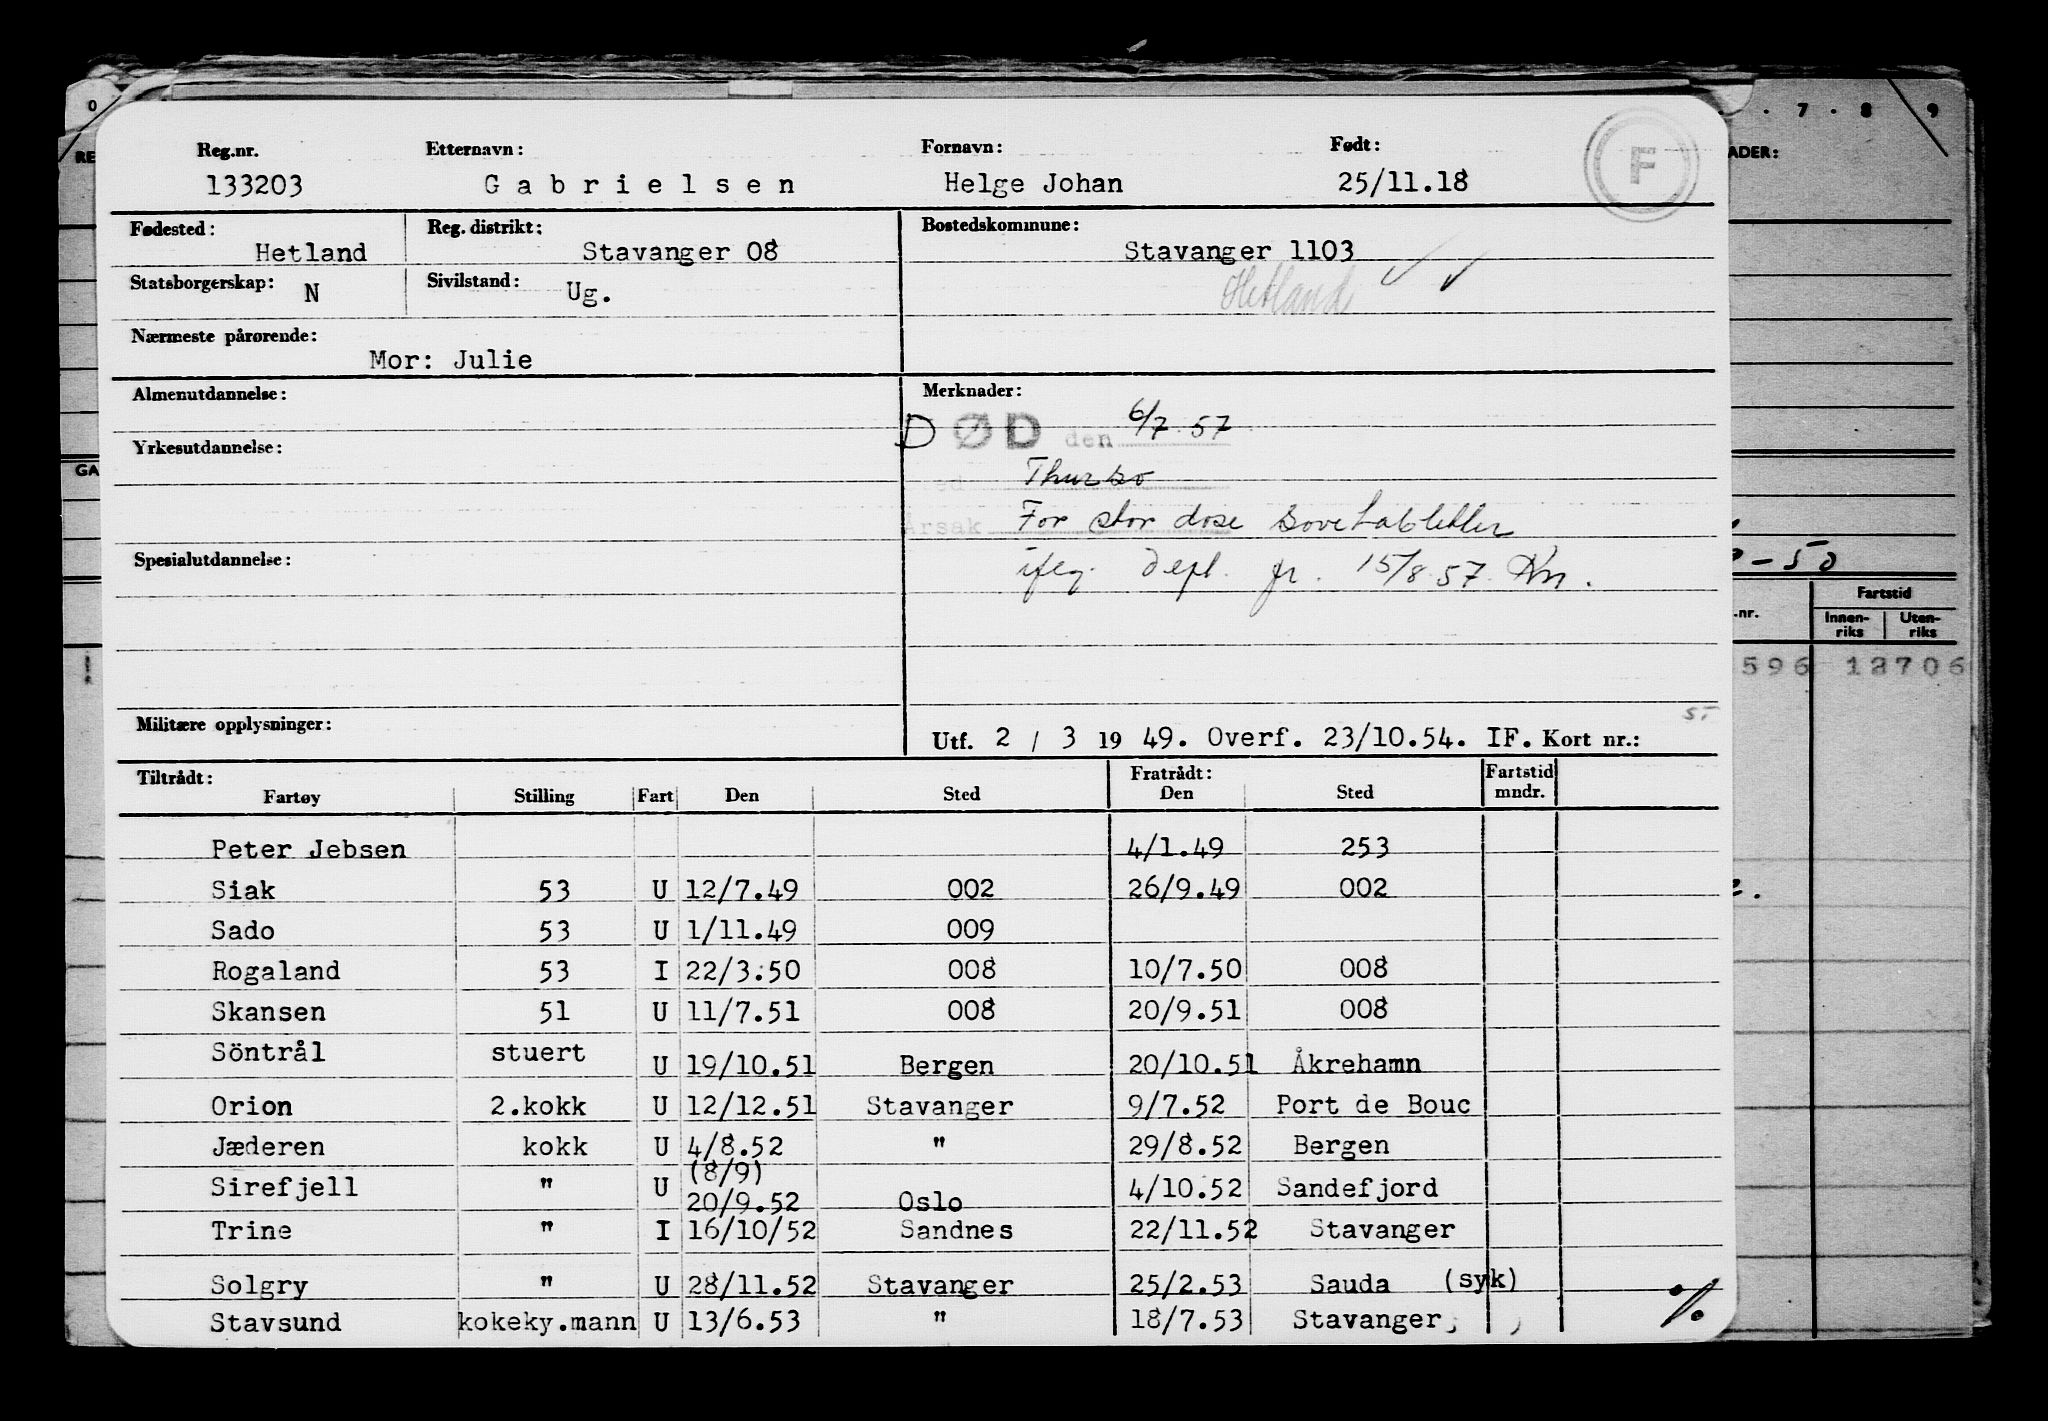 O
7 . 8 9
RE
ADER:
Reg.nr. Etternavn: Fornavn: Født:
133203 Gabrielsen Helge Johan 25/11.18
F
Fødested: Reg. distrikt: Bostedskommune:
Hetland Stavanger 08 Stavanger 1103
Statsborgerskap: N Sivilstand: Ug.
Hetland
Nærmeste pårørende:
Mor: Julie
Almenutdannelse: Merknader:
DØD den 6/7 57
Yrkesutdannelse:
GA
Thurso
Årsak For stor dose sovetabletter
Spesialutdannelse: ifeg. depl. fr. 15/8.57. Kn.
- 50
Fartstid
.nr. Innen-riks Uten-riks
596 18706
Militære opplysninger:
Utf. 2 / 3 19 49. Overf. 23/10.54. IF. Kort nr.:
Tiltrådt: Fratrådt: Fartstid
Fartøy Stilling Fart Den Sted Den Sted mndr.
Peter Jebsen 4/1.49 253
Siak 53 U 12/7.49 002 26/9.49 002
Sado 53 U 1/11.49 009
Rogaland 53 I 22/3.50 008 10/7.50 008
Skansen 51 U 11/7.51 008 20/9.51 008
Söntrål stuert U 19/10.51 Bergen 20/10.51 Åkrehamn
Orion 2.kokk U 12/12.51 Stavanger 9/7.52 Port de Bouc
Jæderen kokk U 4/8.52 " 29/8.52 Bergen
Sirefjell " U (8/9) 20/9.52 Oslo 4/10.52 Sandefjord
Trine " I 16/10/52 Sandnes 22/11.52 Stavanger
Solgry " U 28/11.52 Stavanger 25/2.53 Sauda (syk)
Stavsund kokeky.mann U 13/6.53 " 18/7.53 Stavanger
%